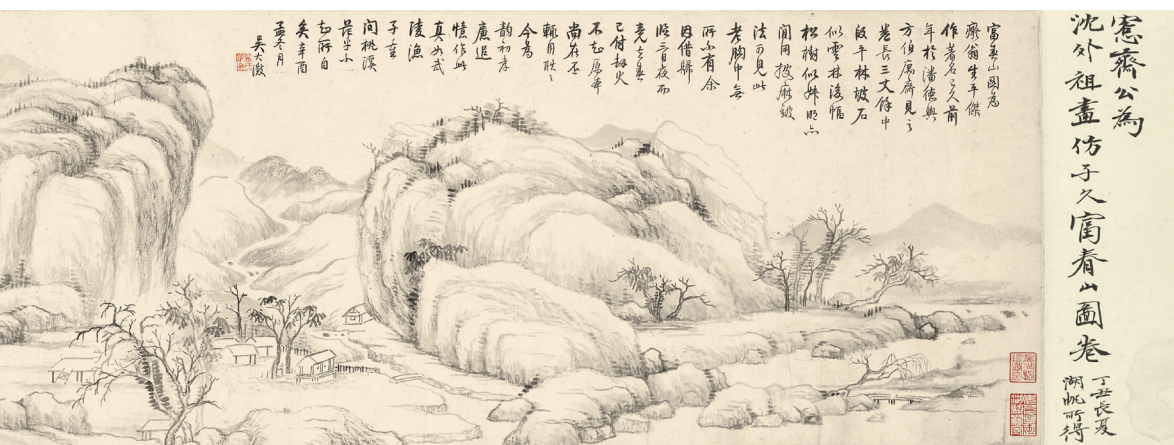 愙齋公為
沈外祖畫仿子久富春山圖卷
丁丑長夏
湖帆所得
富春山圖為
癡翁生平傑
作著名已久前
年於潘德輿
方伯處齋見之
卷長三丈餘中
段平林坡石
似雲林後幅
松樹似
間用披麻皴
法可見此
老胸中無
所不有余
因借歸
臨三日夜而
竟
已付劫火
不知原本
尚在否
輒自耿耿
今為
韵初孝
廉追
憶作此
真如武
陵漁
子重
問桃溪
茫乎不
知所自
矣辛酉
孟冬月
吳大澂